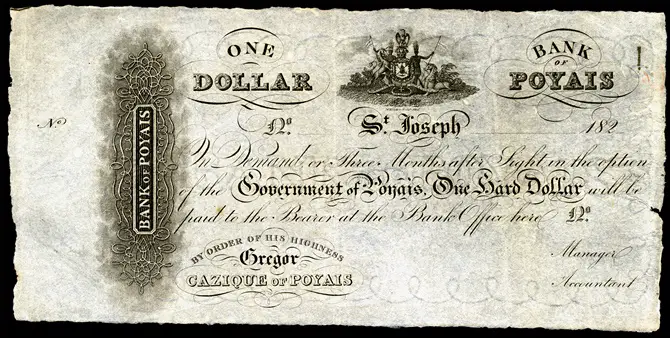 ONE
DOLLAR
BANK
OF
POYAIS
Nº
Nº
St. Joseph
182
On Demand, or Three Months after Sight in the option
of the Government of Poyais, One Hard Dollar will be
paid to the Bearer at the Bank Office here Nº
BANK OF POYAIS
BY ORDER OF HIS HIGHNESS
Gregor
CAZIQUE OF POYAIS
Manager
Accountant